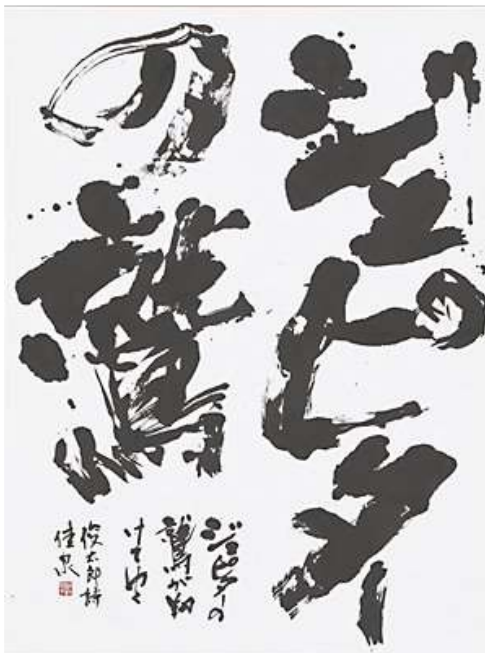 ジュピター
の鷲
ジュピターの
鷲が翔
けてゆく
俊太郎詩
佳泉